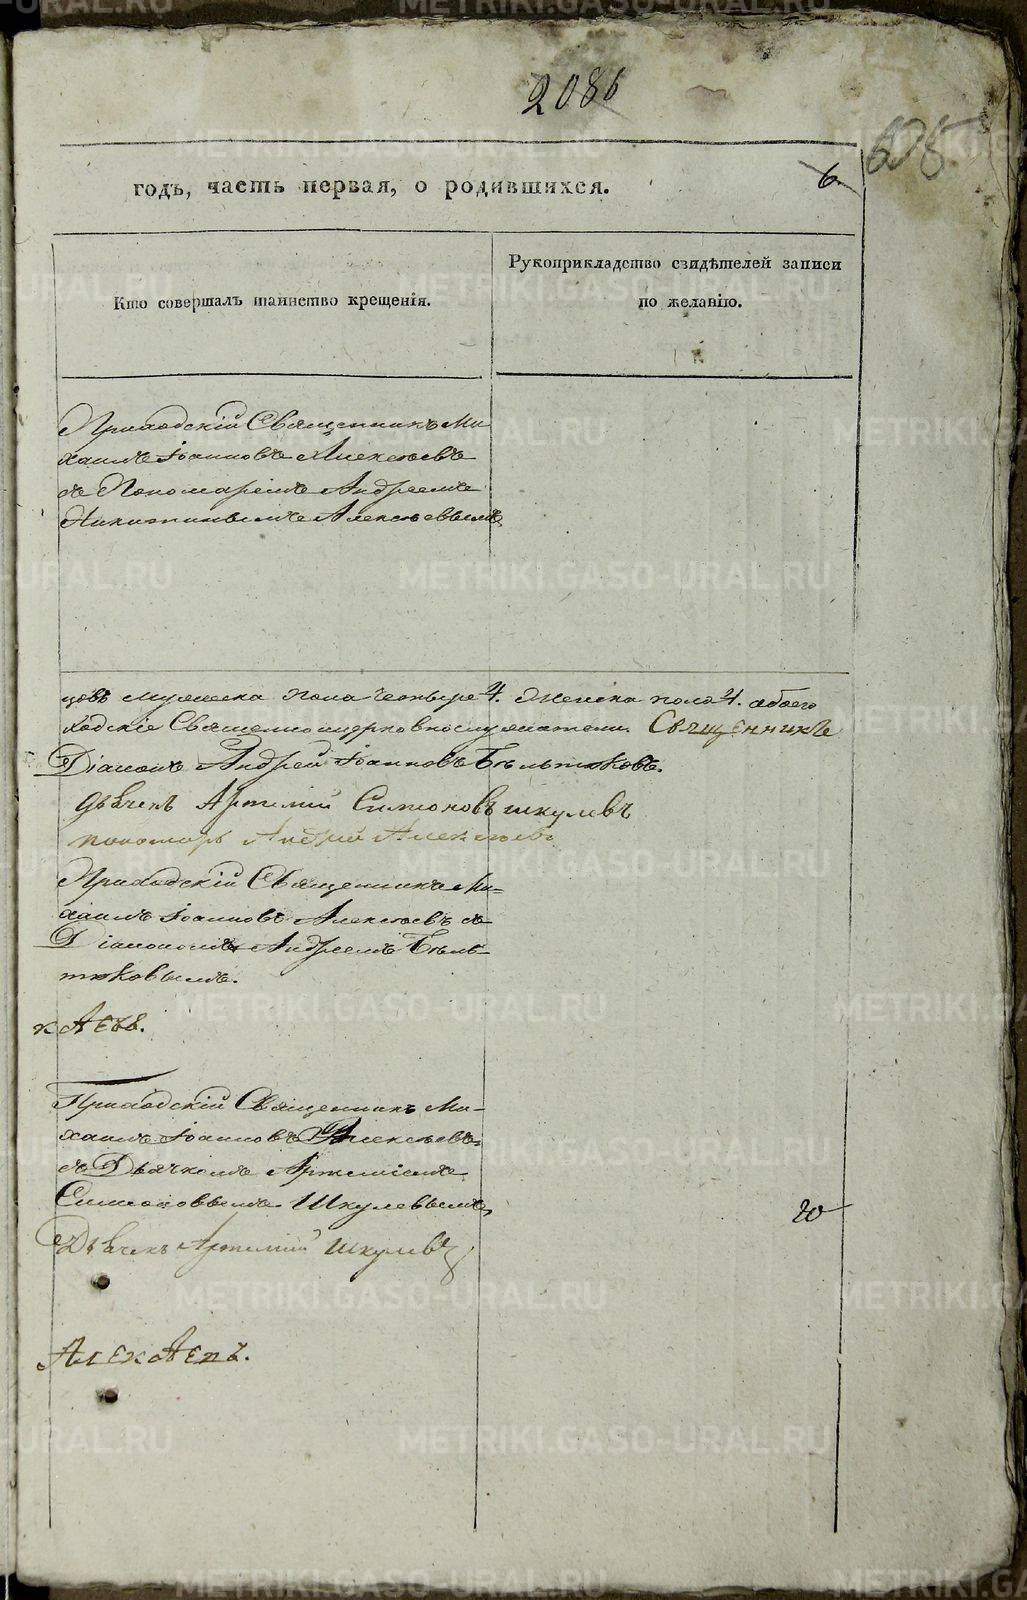 2086
625
6
годъ, часть первая, о родившихся.
Кто совершалъ таинство крещенія.
Рукоприкладство свидѣтелей записи
по желанію.
Приходскій Священникъ Ми
хаилъ Іоанновъ Алексѣевъ
съ Пономаремъ Андреемъ
Никитинымъ Алексѣевымъ
цовъ мужеска пола четыре 4. женска пола 4. обоего
ходскіе Священноцерковнослужители Священникъ
Діаконъ Андрей Іоанновъ Бѣльтюковъ.
дьячекъ Артемий Симоновъ шкулевъ
пономарь Андрей Алексѣевъ
Приходскій Священникъ Ми=
хаилъ Іоанновъ Алексѣевъ съ
Діакономъ Андреемъ Бѣль=
тюковымъ.
Приходскій Священникъ Ми=
хаилъ Іоанновъ Алексѣевъ
съ Дьячкомъ Артеміемъ
Симоновымъ Шкулевымъ
20
Дьячекъ Артемий шкулевъ
METRIKI.GASO-URAL.RU